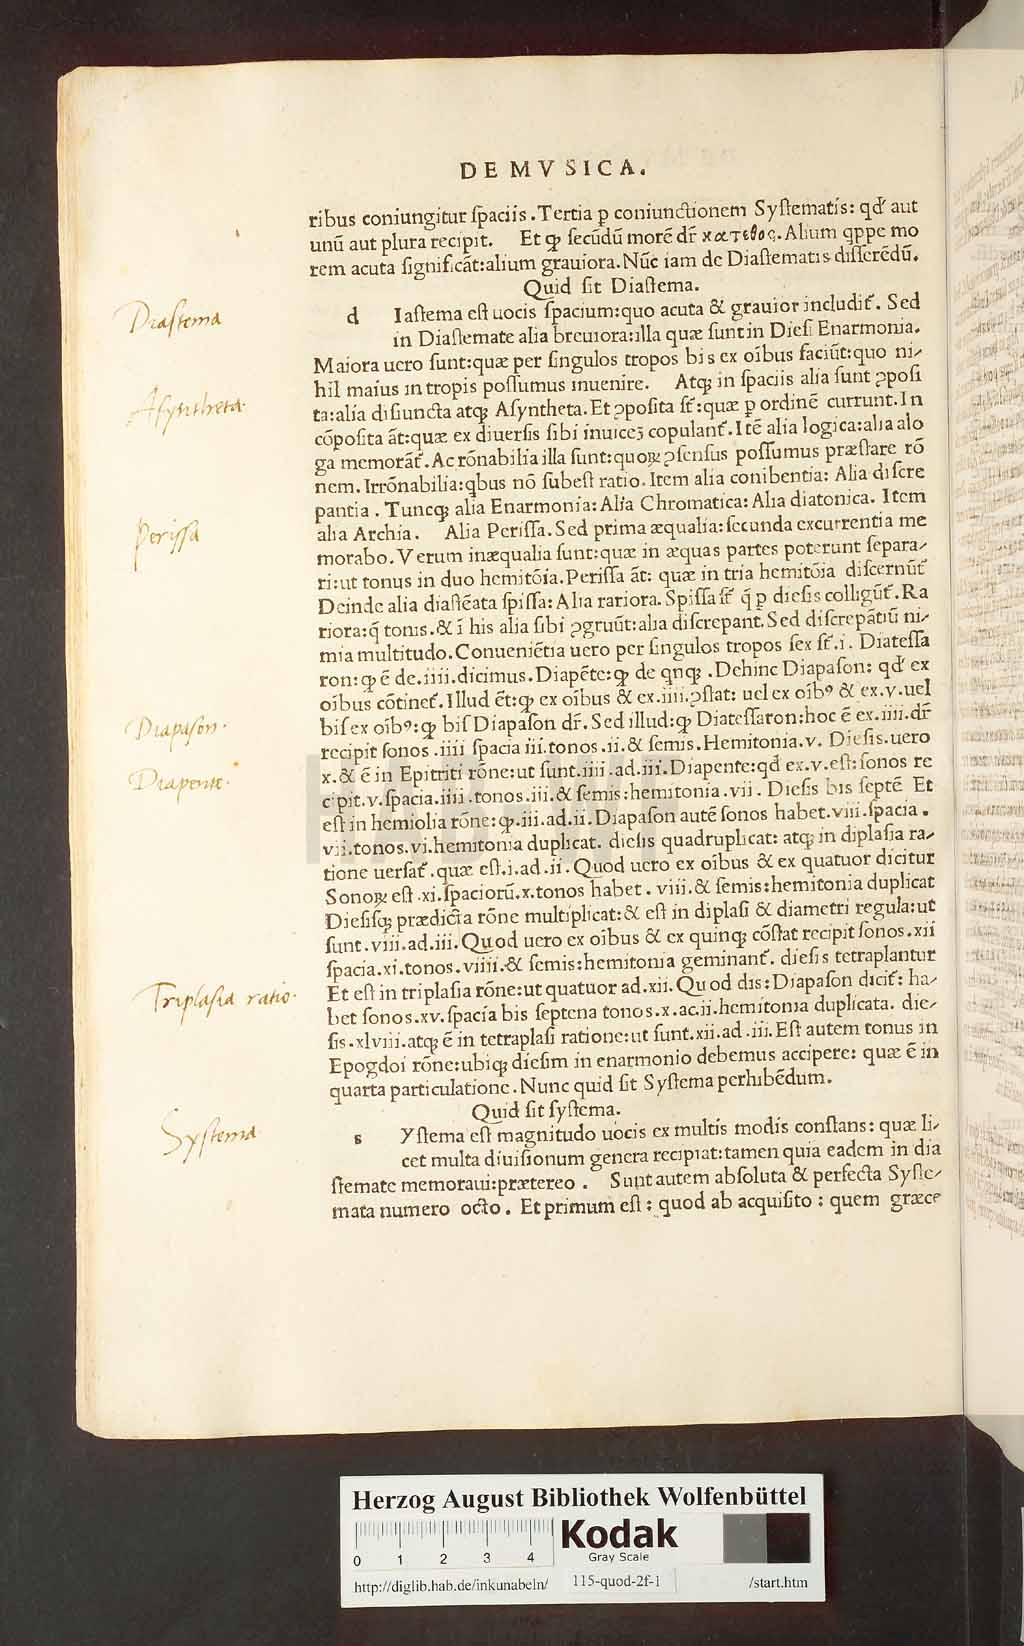 DE MVSICA.
ribus coniungitur ſpaciis. Tertia ꝑ coniunctionem Syſtematis: qđ aut
unũ aut plura recipit. Et ꝙ ſecũdũ morẽ dr̃ Alium ꝗppe mo
rem acuta ſignificãt: alium grauiora. Nũc iam de Diaſtematis diſſerẽdũ.
Quid ſit Diaſtema.
Diaſtema
d Iaſtema eſt uocis ſpacium: quo acuta & grauior includit᷑. Sed
in Diaſtemate alia breuiora: illa quæ ſunt in Dieſi Enarmonia.
Maiora uero ſunt: quæ per ſingulos tropos bis ex oĩbus faciũt: quo ni-
hil maius in tropis poſſumus inuenire. Atqꝫ in ſpaciis alia ſunt ꝯpoſi
Aſyntheta.
ta: alia diſiuncta atqꝫ Aſyntheta. Et ꝯpoſita ſt᷑: quæ ꝑ ordinẽ currunt. In
cõpoſita ãt: quæ ex diuerſis ſibi inuiceꝫ copulant᷑. Itẽ alia logica: alia alo
ga memorãt᷑. Ac rõnabilia illa ſunt: quoꝝ ꝯſenſus poſſumus præſtare rõ
nem. Irrõnabilia: ꝗbus nõ ſubeſt ratio. Item alia conibentia: Alia diſcre
pantia. Tuncqꝫ alia Enarmonia: Alia Chromatica: Alia diatonica. Item
Periſſa
alia Archia. Alia Periſſa. Sed prima æqualia: ſecunda excurrentia me
morabo. Verum inæqualia ſunt: quæ in æquas partes poterunt ſepara-
ri: ut tonus in duo hemitõia. Periſſa ãt: quæ in tria hemitõia diſcernũt᷑
Deinde alia diaſtẽata ſpiſſa: Alia rariora. Spiſſa ſt᷑ q̃ ꝑ dieſis colligũt᷑. Ra
riora: q̃ tonis. & ĩ his alia ſibi ꝯgruũt: alia diſcrepant. Sed diſcrepãtiũ ni-
mia multitudo. Conueniẽtia uero per ſingulos tropos ſex ſt᷑. i. Diateſſa
ron: ꝙ ẽ de. iiii. dicimus. Diapẽte: ꝙ de ꝗnqꝫ. Dehinc Diapaſon: qđ ex
oĩbus cõtinet᷑. Illud ẽt: ꝙ ex oĩbus & ex. iiii. ꝯſtat: uel ex oĩbꝰ & ex. v. uel
Diapaſon.
biſ ex oĩbꝰ: ꝙ biſ Diapaſon dr̃. Sed illud: ꝙ Diateſſaron: hoc ẽ ex. iiii. dr̃
recipit ſonos. iiii ſpacia iii. tonos. ii. & ſemis. Hemitonia. v. Dieſis. uero
Diapente.
x. & ẽ in Epitriti rõne: ut ſunt. iiii. ad. iii. Diapente: qđ ex. v. eſt: ſonos re
cipit. v. ſpacia. iiii. tonos. iii. & ſemis: hemitonia. vii. Dieſis bis ſeptẽ Et
eſt in hemiolia rõne: ꝙ. iii. ad. ii. Diapaſon autẽ ſonos habet. viii. ſpacia.
vii. tonos. vi. hemitonia duplicat. dieſis quadruplicat: atqꝫ in diplaſia ra-
tione uerſat᷑. quæ eſt. i. ad. ii. Quod uero ex oĩbus & ex quatuor dicitur
Sonoꝝ eſt. xi. ſpaciorũ. x. tonos habet. viii. & ſemis: hemitonia duplicat
Dieſiſqꝫ prædicta rõne multiplicat: & eſt in diplaſi & diametri regula: ut
ſunt. viii. ad. iii. Quod uero ex oĩbus & ex quinqꝫ cõſtat recipit ſonos. xii
ſpacia. xi. tonos. viiii. & ſemis: hemitonia geminant᷑. dieſis tetraplantur
Triplaſia ratio.
Et eſt in triplaſia rõne: ut quatuor ad. xii. Quod dis: Diapaſon dicit᷑: ha-
bet ſonos. xv. ſpacia bis ſeptena tonos. x. ac. ii. hemitonia duplicata. die-
ſis. xlviii. atqꝫ ẽ in tetraplaſi ratione: ut ſunt. xii. ad. iii. Eſt autem tonus in
Epogdoi rõne: ubiqꝫ dieſim in enarmonio debemus accipere: quæ ẽ in
quarta particulatione. Nunc quid ſit Syſtema perhibẽdum.
Quid ſit ſyſtema.
Syſtema
s Yſtema eſt magnitudo uocis ex multis modis conſtans: quæ li-
cet multa diuiſionum genera recipiat: tamen quia eadem in dia
ſtemate memoraui: prætereo. Sunt autem abſoluta & perfecta Syſte-
mata numero octo. Et primum eſt: quod ab acquiſito: quem græce
HAB
Herzog August Bibliothek Wolfenbüttel
0 1 2 3 4
Kodak
Gray Scale
http://diglib.hab.de/inkunabeln/ 115-quod-2f-1 /start.htm